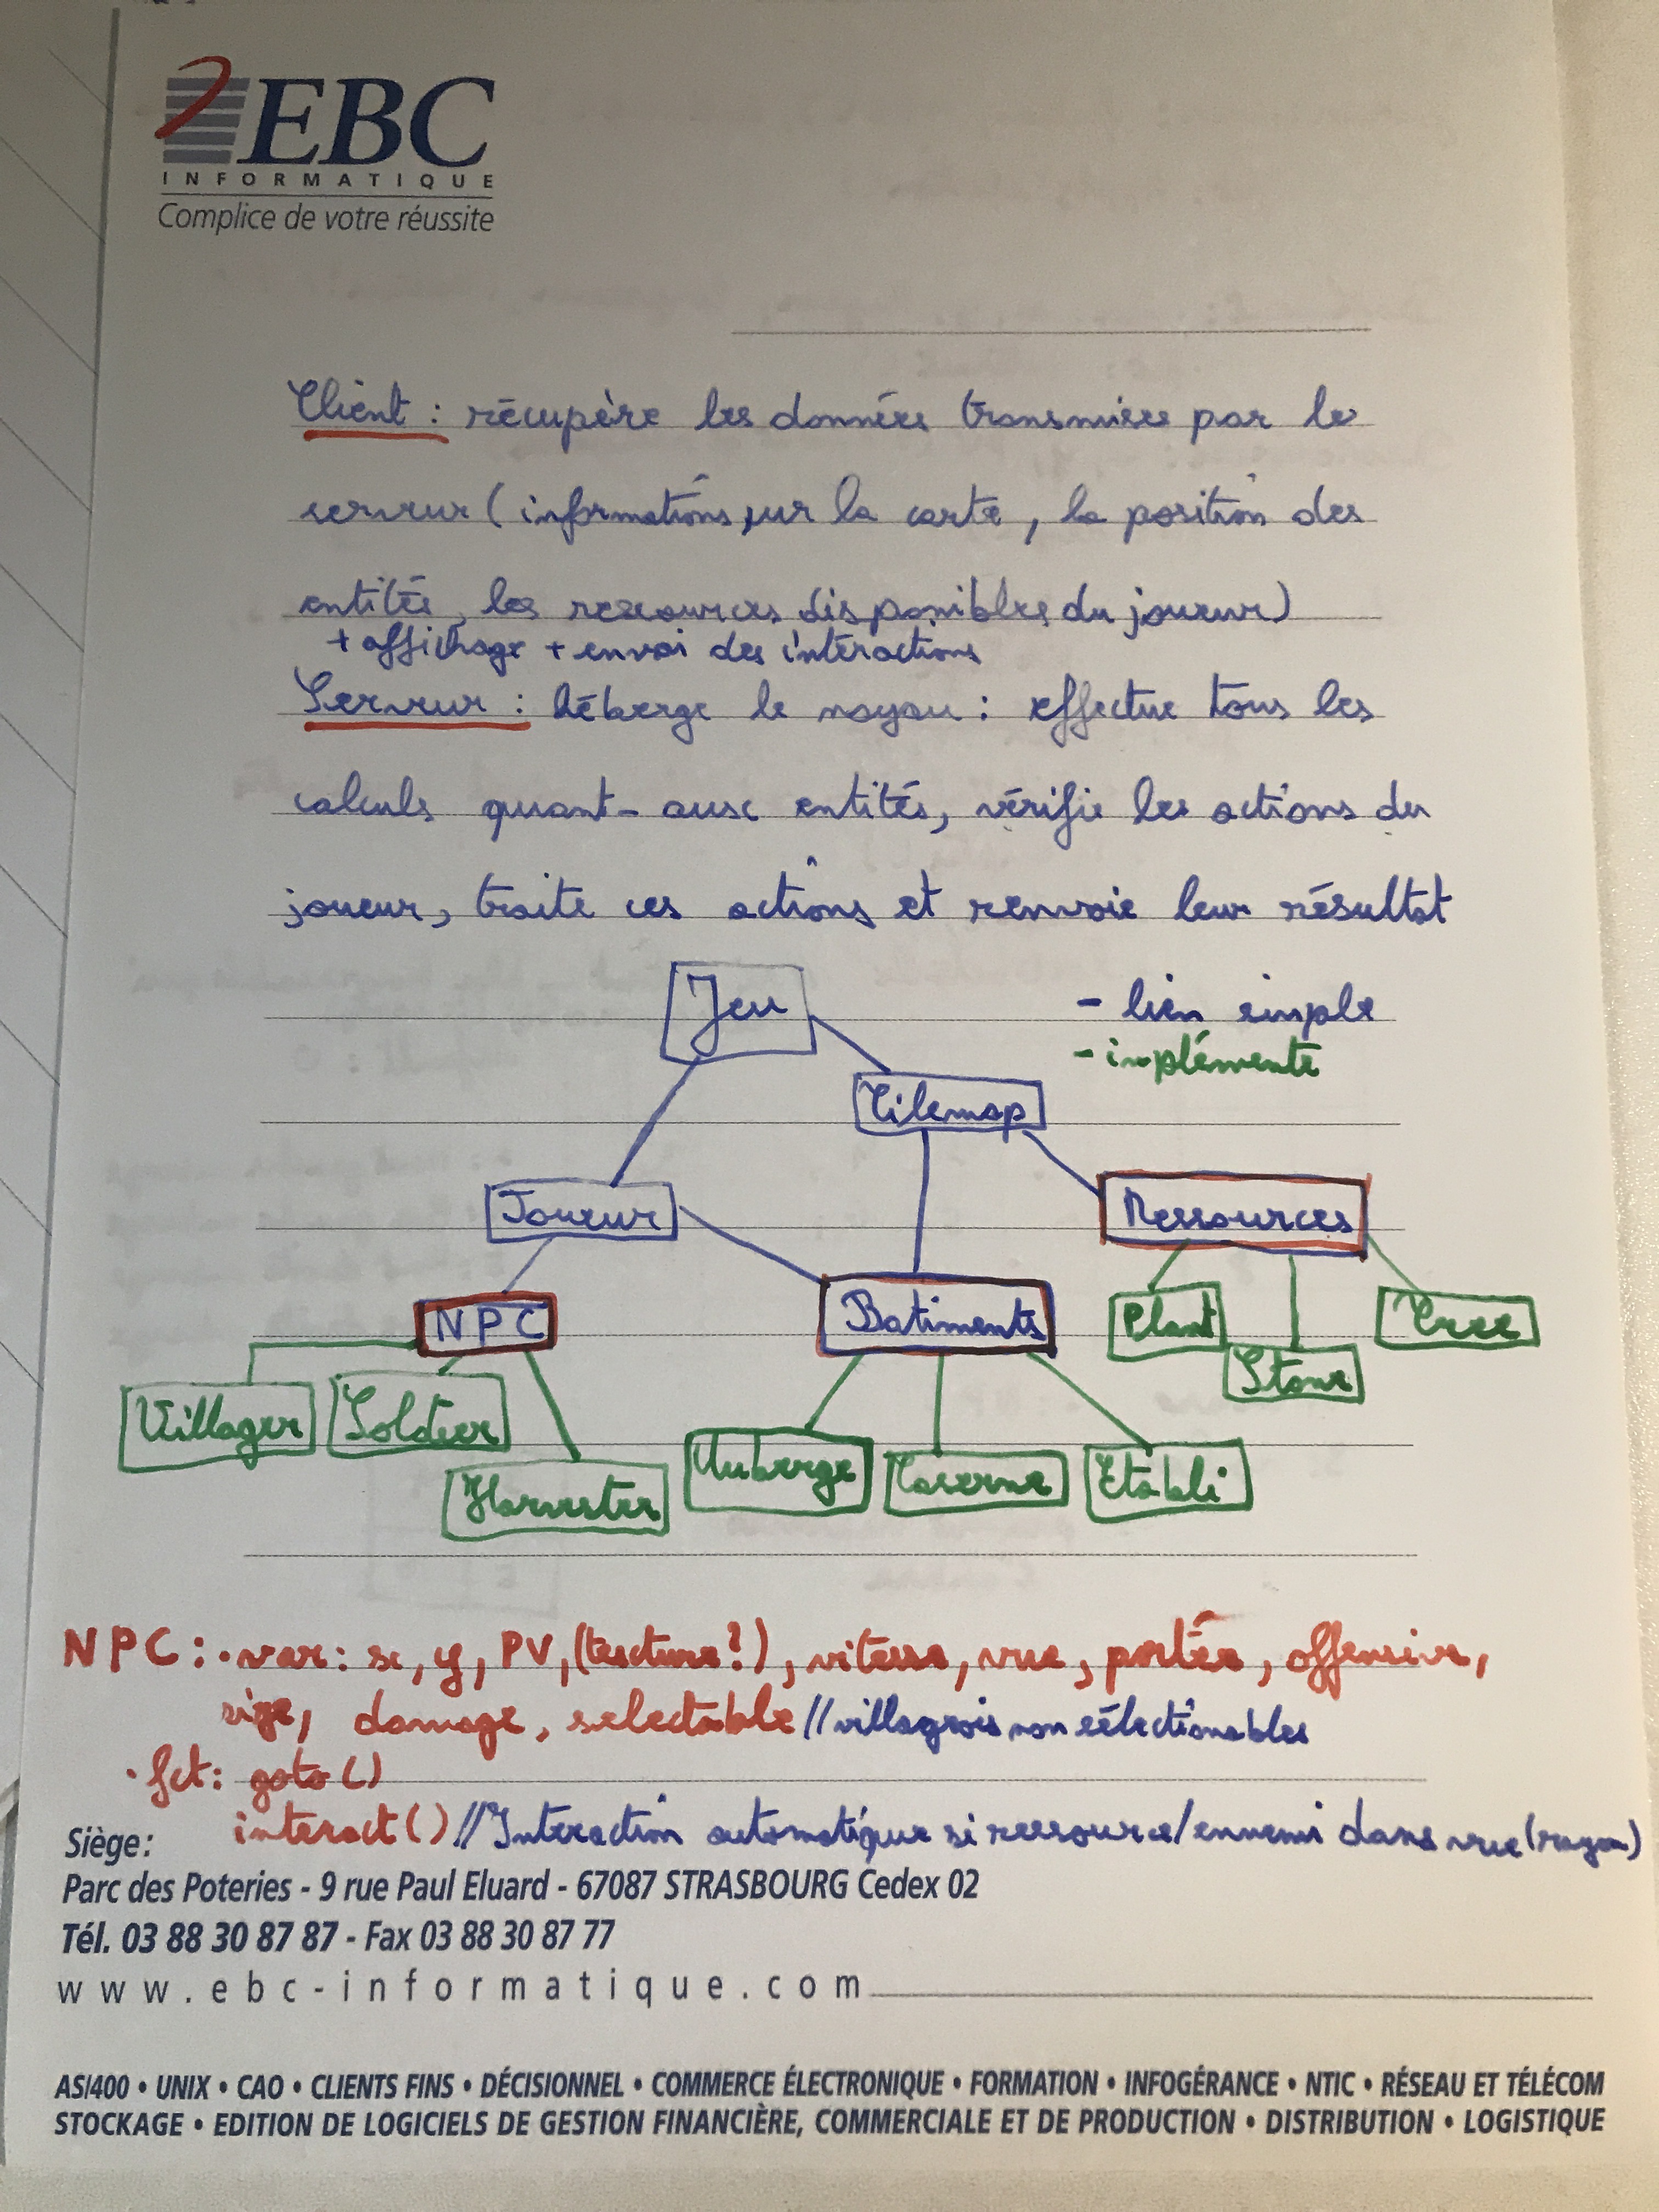 EBC
INFORMATIQUE
Complice de votre réussite
Client : récupère les données transmises par le
serveur (informations sur la carte, la position des
entités, les ressources disponibles du joueur)
+ affichage + envoi des interactions
Serveur : héberge le noyau : effectue tous les
calculs quant-aux entités, vérifie les actions du
joueur, traite ces actions et renvoie leur résultat
Jeu
- lien simple
- implémente
Tilemap
Joueur
Ressources
NPC
Batiments
Plant
Tree
Stone
Villager
Soldier
Harvester
Auberge
Caserne
Etabli
NPC : • var : x, y, PV, (texture?), vitesse, vue, portée, offensive,
size, damage, selectable // villageois non sélectionables
• fct : goto ()
interact () // Interaction automatique si ressource/ennemi dans vue (rayon)
Siège :
Parc des Poteries - 9 rue Paul Eluard - 67087 STRASBOURG Cedex 02
Tél. 03 88 30 87 87 - Fax 03 88 30 87 77
www.ebc-informatique.com
AS/400 • UNIX • CAO • CLIENTS FINS • DÉCISIONNEL • COMMERCE ÉLECTRONIQUE • FORMATION • INFOGÉRANCE • NTIC • RÉSEAU ET TÉLÉCOM
STOCKAGE • EDITION DE LOGICIELS DE GESTION FINANCIÈRE, COMMERCIALE ET DE PRODUCTION • DISTRIBUTION • LOGISTIQUE